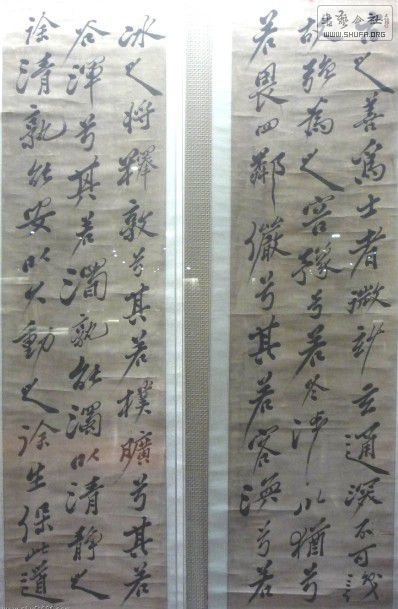 古之善為士者微妙玄通深不可識
故強為之容豫兮若冬涉川猶兮
若畏四鄰儼兮其若容渙兮若
冰之將釋敦兮其若樸曠兮其若
谷渾兮其若濁孰能濁以清靜之
徐清孰能安以久動之徐生保此道
书艺公社
WWW.SHUFA.ORG